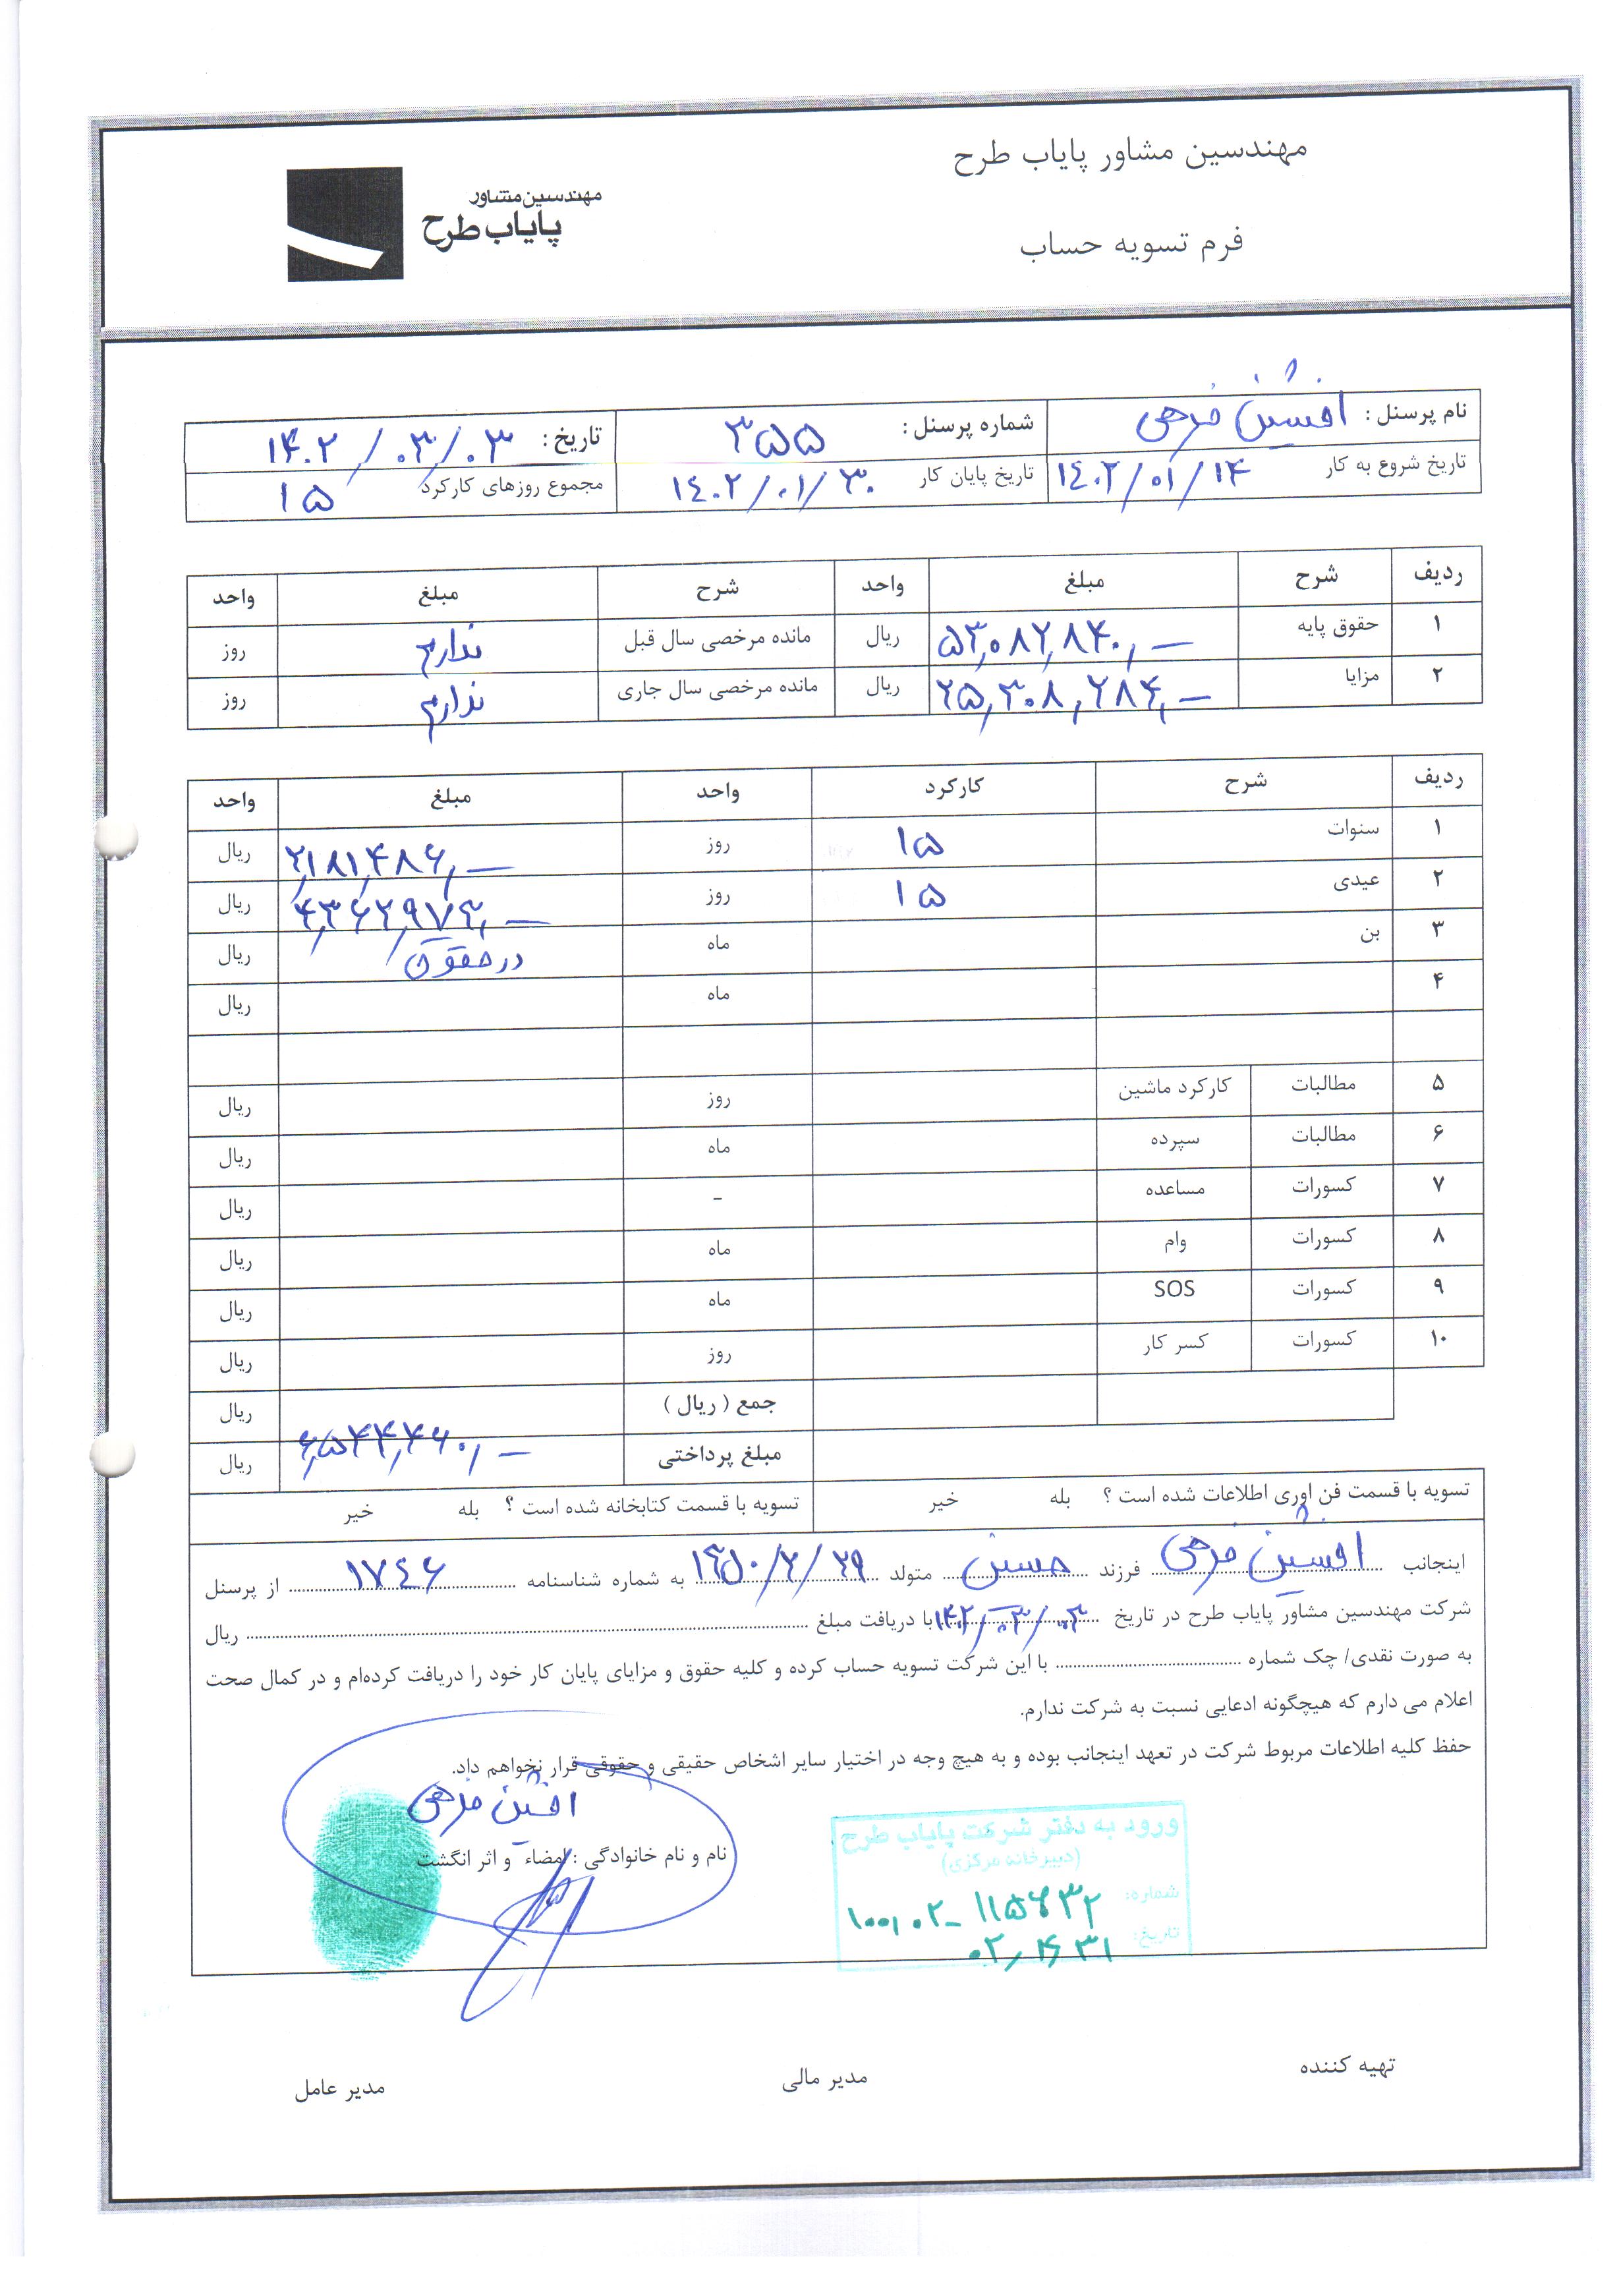 مهندسین مشاور پایاب طرح
مهندسین مشاور
پایاب طرح
فرم تسویه حساب
نام پرسنل : افشین فرهی شماره پرسنل : ۳۵۵ تاریخ : ۱۴۰۲/۰۳/۰۳
تاریخ شروع به کار ۱۴۰۲/۰۱/۱۴ تاریخ پایان کار ۱۴۰۲/۰۱/۳۰ مجموع روزهای کارکرد ۱۵
ردیف شرح مبلغ واحد شرح مبلغ واحد
۱ حقوق پایه ۵۳,۰۸۲,۸۴۰,- ریال مانده مرخصی سال قبل ندارم روز
۲ مزایا ۲۵,۳۰۸,۲۸۴,- ریال مانده مرخصی سال جاری ندارم روز
ردیف شرح کارکرد واحد مبلغ واحد
۱ سنوات ۱۵ روز ۲,۱۸۱,۴۸۶,- ریال
۲ عیدی ۱۵ روز ۴,۳۶۲,۹۷۳,- ریال
۳ بن ماه در حقوق ریال
۴ ماه ریال
۵ مطالبات کارکرد ماشین روز ریال
۶ مطالبات سپرده ماه ریال
۷ کسورات مساعده - ریال
۸ کسورات وام ماه ریال
۹ کسورات SOS ماه ریال
۱۰ کسورات کسر کار روز ریال
جمع ( ریال ) ریال
مبلغ پرداختی ۶,۵۴۴,۴۶۰,- ریال
تسویه با قسمت فن اوری اطلاعات شده است ؟ بله خیر تسویه با قسمت کتابخانه شده است ؟ بله خیر
اینجانب افشین فرهی فرزند حسین متولد ۱۳۵۰/۲/۲۹ به شماره شناسنامه ۱۷۴۶ از پرسنل
شرکت مهندسین مشاور پایاب طرح در تاریخ ۱۴۰۲/۰۳/۰۳ با دریافت مبلغ ........ ریال
به صورت نقدی/ چک شماره ........ با این شرکت تسویه حساب کرده و کلیه حقوق و مزایای پایان کار خود را دریافت کرده‌ام و در کمال صحت
اعلام می دارم که هیچگونه ادعایی نسبت به شرکت ندارم.
حفظ کلیه اطلاعات مربوط شرکت در تعهد اینجانب بوده و به هیچ وجه در اختیار سایر اشخاص حقیقی و حقوقی قرار نخواهم داد.
افشین فرهی
نام و نام خانوادگی : امضاء و اثر انگشت
ورود به دفتر شرکت پایاب طرح
(دبیرخانه مرکزی)
شماره: ۱۰۰,۰۲-۱۱۵۶۳۲
تاریخ:
تهیه کننده مدیر مالی مدیر عامل